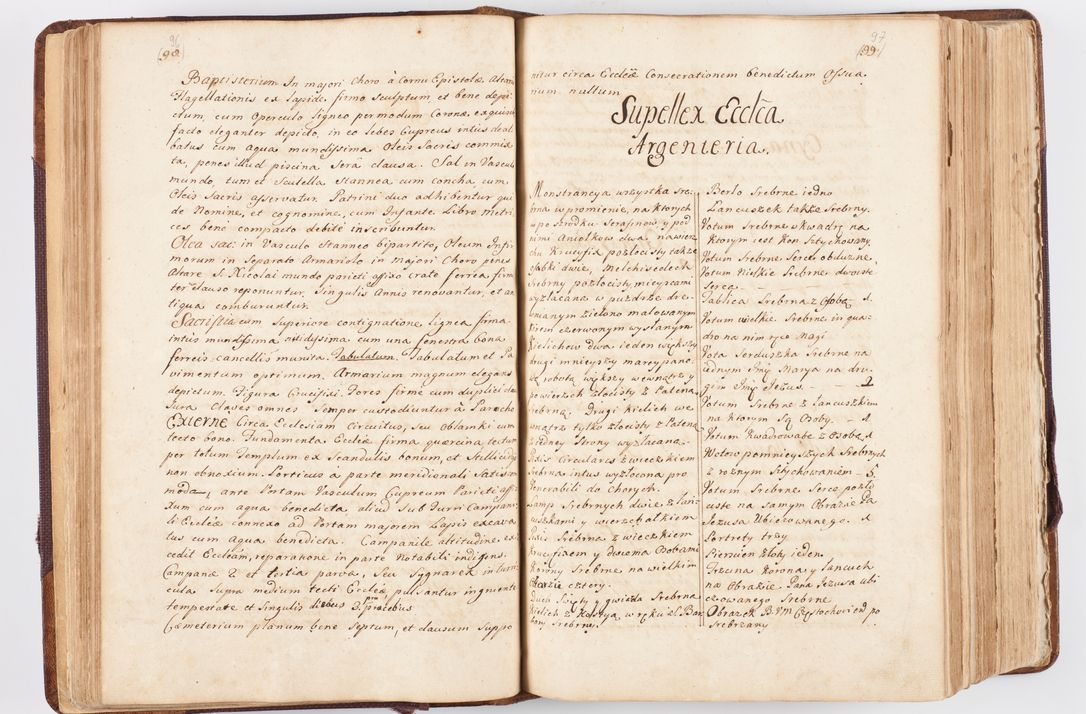 96
(98)
Baptisterium In majori Choro à Cornu Epistolæ Altaris
Flagellationis ex lapide firmo sculptum, et bene depi-
ctum, cum Operculo ligneo per modum Coronæ exquisito
facto eleganter depicto, in eo lebes Cupreus intus deal
batus cum aqua mundissima Oleis Sacris commix
ta, penes illud piscina Serâ clausa. Sal in Vascul
mundo, tum et Scutella Stannea cum concha, cum
Oleis Sacris asservatur. Patrini duo adhibentur qui
de Nomine, et cognomine, cum Infante Libro Metri
ces bene compacto debite inscribuntur.
Olea sac: in Vasculo Stanneo bipartito, Oleum Infir
morum in Separato Armariolo in majori Choro penes
Altare S: Nicolai mundo parieti affixo crate ferrea firmi
ter clauso reponuntur, Singulis Annis renovantur, et an
tiqua comburuntur.
Sacristia cum Superiore contignatione lignea firma
intus mundissima nitidissima cum una fenestra bona
ferreis cancellis munita. Tabulatum. Tabulatum et Pa
vimentum optimum. Armarium magnum elegans
depictum. Figura Crucifixi. Fores firmæ cum duplici de
Sura Claves omnes Semper custodiuntur à Parocho
Externe Circa Ecclesiam circuitus, seu Oblamki cum
tecto bono. Fundamenta Eccleæ firma quercina, tectum
per totum Templum ex Scandulis bonum, et Stillicidy
non obnoxium. Porticus à parte meridionali Satis com
moda, ante Portam Vasculum Cupreum Parieti affi
xum cum aqua benedicta, aliud Sub Turri Campan
li Eccleæ connexo ad Portam majorem Lapis excava
tus cum Aqua benedicta. Campanile altitudine ex
cedit Eccleam, reparatione in parte Notabili indigens.
Campanæ 2 et tertia parva, Seu Sygnarek in turri
cula Supra medium tecti Eccleæ pulsantur ingruente
tempestate et Singulis diebus
Cæmeterium planum bene Septum, et clausum Suppo
97
(99)
nitur circa Eccleæ Consecrationem benedictum Ossua
rium nullum
Supellex Ecclea
Argenteria.
Monstrancya wszystka sre
brna w promienie, na ktorych
w po srodku Serafinow y pod
niemi Aniołkow dwa, na wierz
chu Krucyfix pozłocisty także
głabki dwie, Melchisedech
srebrny pozłocisty, mieyscami
wyzłacana w puzdrze dre
wnianym zielono malowanym
czerwonym wysłanym
Kielichow dwa ieden większy
drugi mnieyszy marcypano
wą robotą większy wewnątrz y
powierzch złocisty z Pateną
srebrną. Drugi Kielich we
wnątrz tylko złocisty z Pateną
z iedney strony wyzłacana.
Pixis Circularis z wieczkiem
srebrna intus wyzłocona pro
Venerabili do chorych.
Lamp srebrnych dwie z łan
cuszkami y wierzchołkiem
Puszka Srebrna z wieczkiem
Krucyfixem y dwiema Osobami
Korony srebrne na wielkim
Obrazie cztery.
Duch Święty y gwiazda Srebrna
Kielich z Hostyą, w ręku S. Bar
bary srebrny.
Berło srebrne iedno
Łancuszek także srebrny.
Votum srebrne w kwadrę na
ktorym iest Kon Sztychowany.
Votum srebrne Serce obdużne.
Votum wielkie Srebrne dwoiste
Serca.
Tablica Srebrna z Osobą 1.
Votum wielkie srebrne in qua
dro na nim trzy Magi
Vota Serduszka Srebrne na
iednym Imę Marya na dru
gim Imę Jezus. — 2
Votum Srebrne z Łancuszkiem
na ktorym są Osoby. — 1.
Votum Kwadowate z Osobą 1
Wotow pomnieyszych Srebrnych
z roznym Sztychowaniem — 5.
Votum srebrne Serce pozło
ciste na samym Obrazie Pa
Jezusa Ubiczowanego. 1
Portrety trzy.
Pierscien złoty ieden.
Trzcina Korona y Łancuch
na Obrazie Pana Jezusa ubi
czowanego Srebrne
Obrazek B.V.M. Częstochowied po
srebrzany